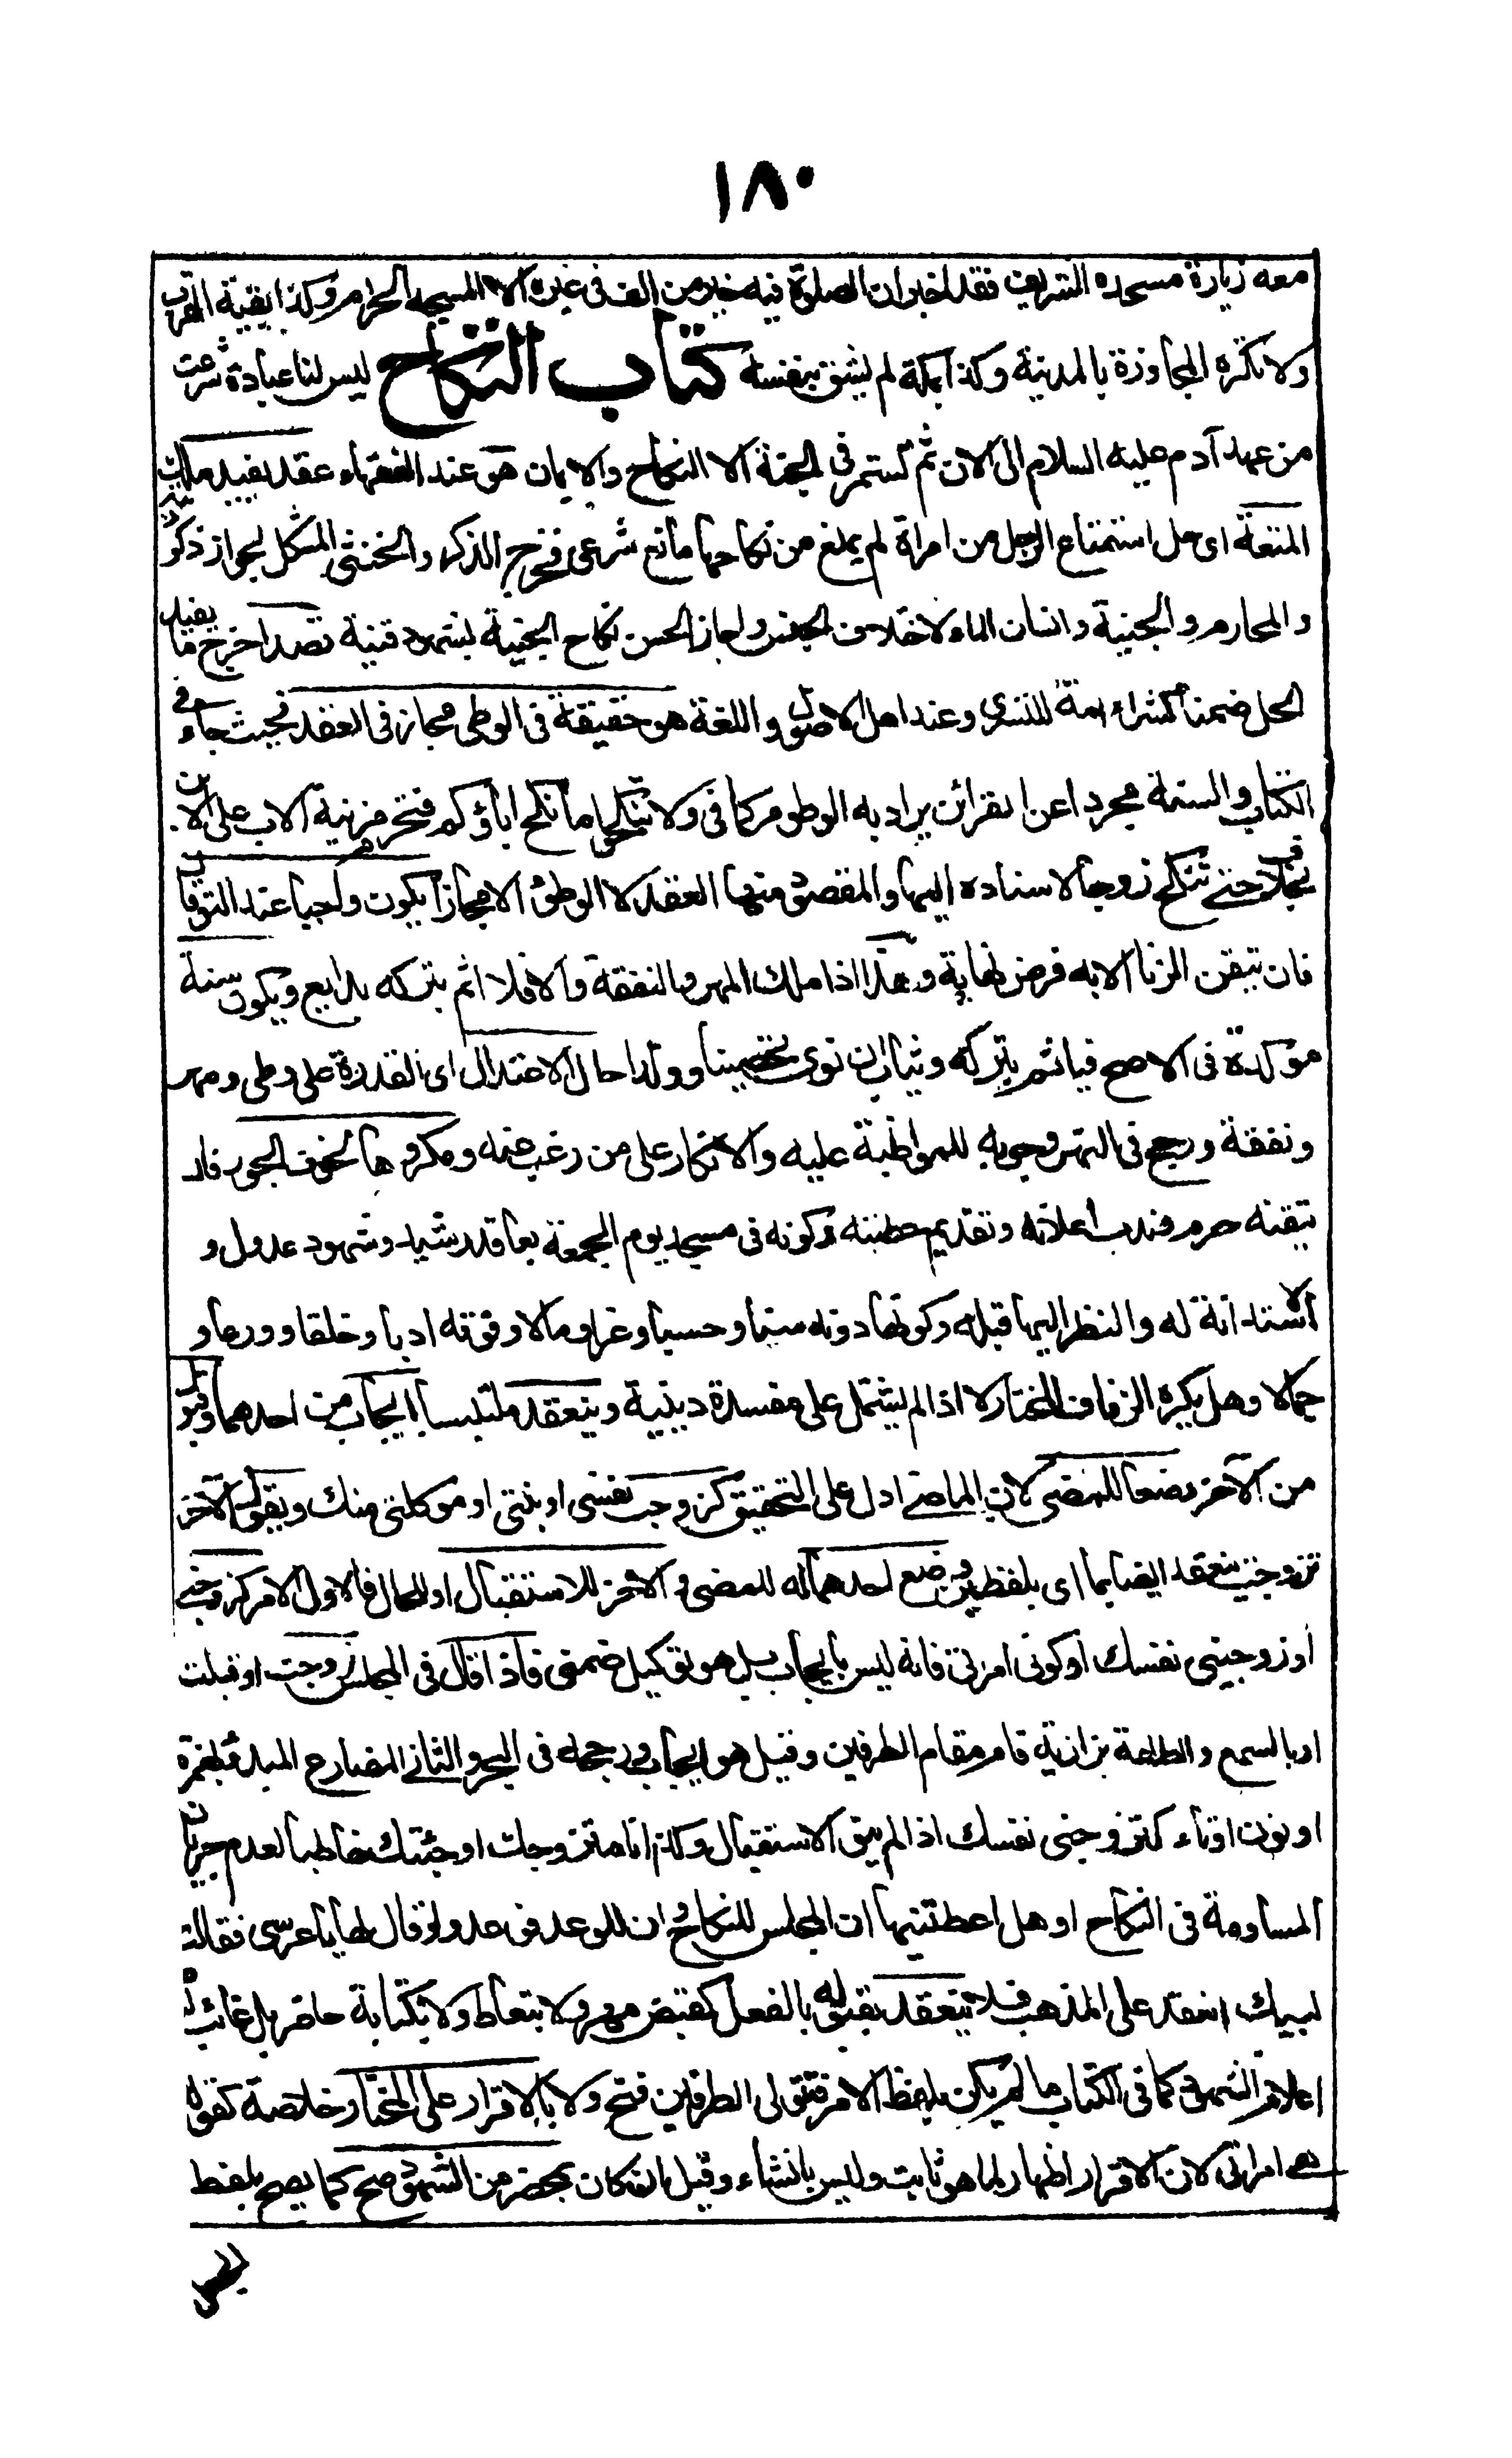 ١٨٠
معه زيارة مسجده الشريف فقد اخبر ان الصلوة فيه خير من الف في غيره الا المسجد الحرام وكذا بقية القرب
ولا تكره المجاورة بالمدينة وكذا بمكة لم يثق بنفسه كتاب النكاح ليس لنا عبادة شرعت
من عهد آدم عليه السلام الى الان ثم تستمر في الجنة الا النكاح والايمان هو عند الفقهاء عقد يفيد ملك
المتعة اى حل استمتاع الرجل من امراة لم يمنع من نكاحها مانع شرعى فخرج الذكر والخنثى المشكل لجواز ذكورته
والمحارم والجنية وانسان الماء لاختلاف الجنس واجاز الحسن نكاح الجنية بشهود قنية قصدا خرج ما يفيد
الحل ضمنا كشراء امة للتسرى وعند اهل الاصول واللغة هو حقيقة في الوطى مجاز في العقد فحيث جاء في
الكتاب والسنة مجردا عن القرائن يراد به الوطى كما في ولا تنكحوا ما نكح اباؤكم فتحرم مزنية الاب على الابن
بخلاف حتى تنكح زوجا لاسناده اليها والمتصور منها العقد لا الوطئ الا مجازا يكون واجبا عند التوقان
فان تيقن الزنا الا به فرض نهاية وهذا اذا ملك المهر والنفقة والا فلا اثم بتركه بدايع ويكون سنة
مؤكدة في الاصح فياثم بتركه ويثاب ان نوى تحصينا وولدا حال الاعتدال اى القدرة على وطى ومهر
ونفقة ورجح في النهر وجوبه للمواظبة عليه والانكار على من رغب عنه ومكروها لخوف الجور فان
تيقنه حرم ويندب اعلانه وتقديم خطبته وكونه في مسجد يوم الجمعة بعاقد رشيد وشهود عدول و
الاستدانة له والنظر اليها قبله وكونها دونه سنا وحسبا وعزا ومالا وفوقه ادبا وخلقا وورعا و
جمالا وهل يكره الزفاف المختار لا اذا لم يشتمل على مفسدة دينية وينعقد ملتبسا بايجاب من احدهما وقبول
من الآخر وضعا للمضى لان الماضى ادل على التحقيق كزوجت نفسى او بنتى او موكلتى منك ويقول الآخر
تزوجت وينعقد ايضا بما اى بلفظين وضع احدهما له للمضى و الآخر للاستقبال او للحال فالاول الامر كزوجنى
او زوجينى نفسك او كونى امرتى فانه ليس بايجاب بل هو توكيل ضمنى فاذا قال في المجلس زوجت او قبلت
او بالسمع والطاعة بزازية قام مقام الطرفين وقيل هو ايجاب ورجحه في البحر والثانى المضارع المبدو بهمزة
او نون او تاء كتزوجنى نفسك اذا لم ينو الاستقبال وكذا انا متزوجك او جئتك خاطبا لعدم جريان
المساومة في النكاح او هل اعطيتنيها ان المجلس للنكاح وان للوعد فوعد ولو قال لها يا عرسى فقالت
لبيك انعقد على المذهب فلا ينعقد بقبوله بالفعل كقبض مهر ولا بتعاط ولا بكتابة حاضر بل غائب
اعلام الشهود كما في الكتاب ما لم يكن بلفظ الامر فيتولى الطرفين فتح ولا بالاقرار على المختار وخلاصة كقوله
هى امراتى لان الاقرار اظهار لما هو ثابت وليس بانشاء وقيل ان كان بمحضر من الشهود صح كما يصح بلفظ